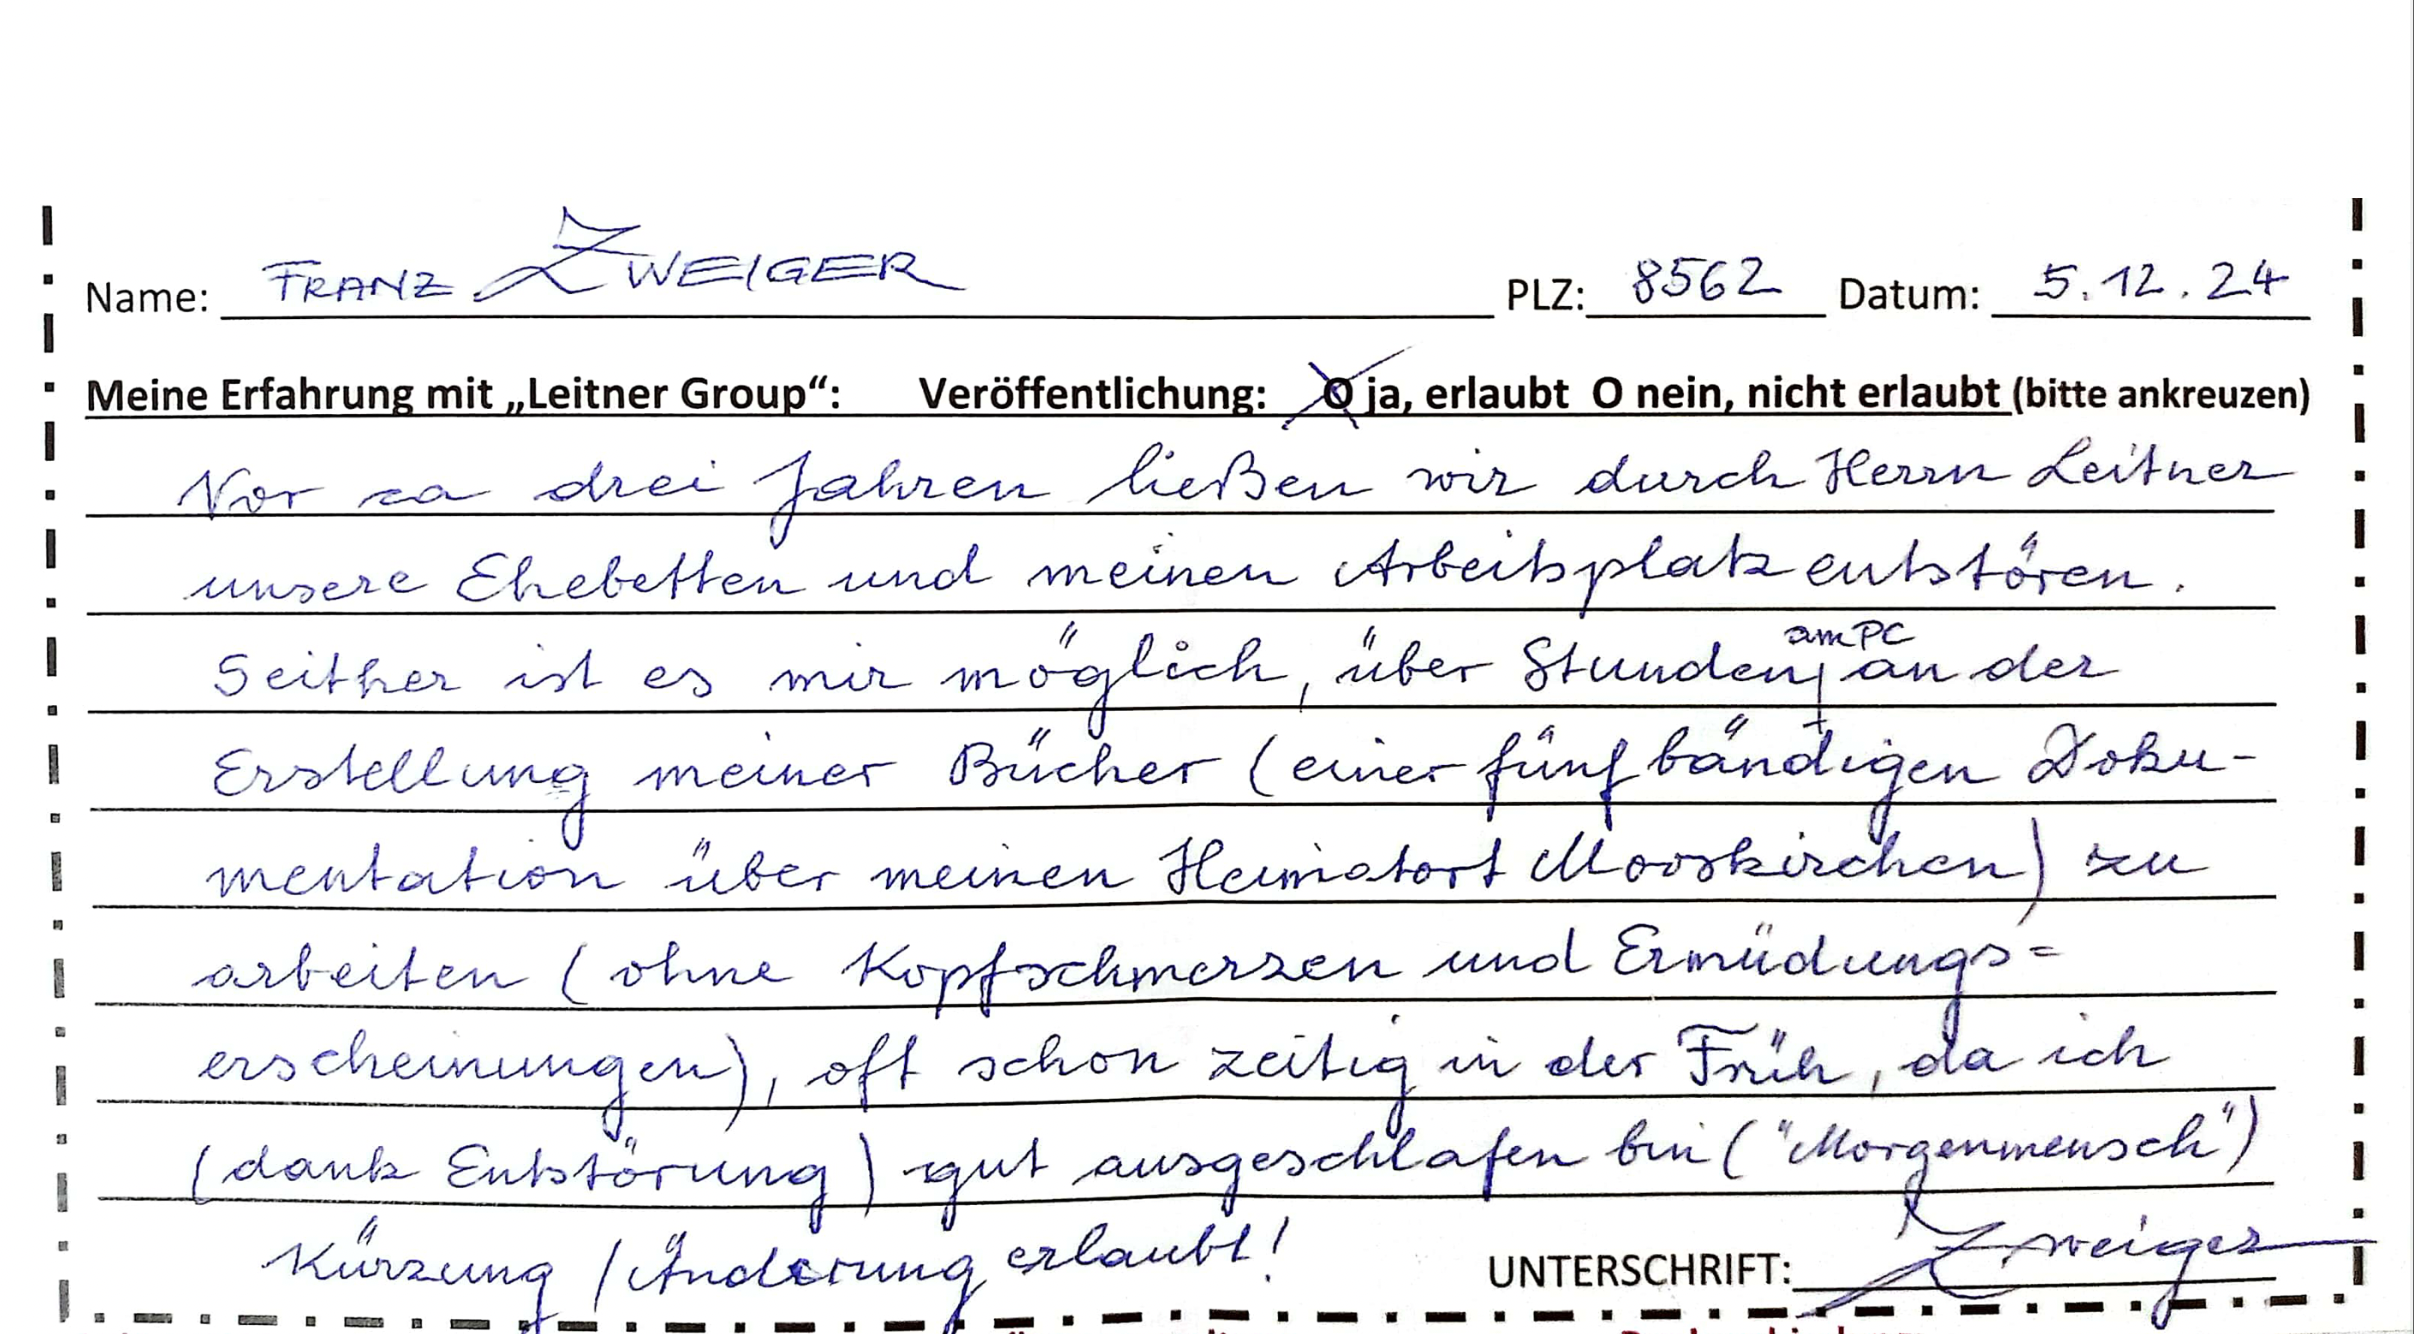 Name: FRANZ ZWEIGER PLZ: 8562 Datum: 5.12.24
Meine Erfahrung mit „Leitner Group“: Veröffentlichung: O ja, erlaubt O nein, nicht erlaubt (bitte ankreuzen)
Vor ca drei Jahren ließen wir durch Herrn Leitner
unsere Ehebetten und meinen Arbeitsplatz entstören.
am PC
Seither ist es mir möglich, über Stunden an der
Erstellung meiner Bücher (einer fünfbändigen Doku-
mentation über meinen Heimatort Mooskirchen) zu
arbeiten (ohne Kopfschmerzen und Ermüdungs=
erscheinungen), oft schon zeitig in der Früh, da ich
(dank Entstörung) gut ausgeschlafen bin ("Morgenmensch")
Kürzung / Änderung erlaubt! UNTERSCHRIFT: Zweiger